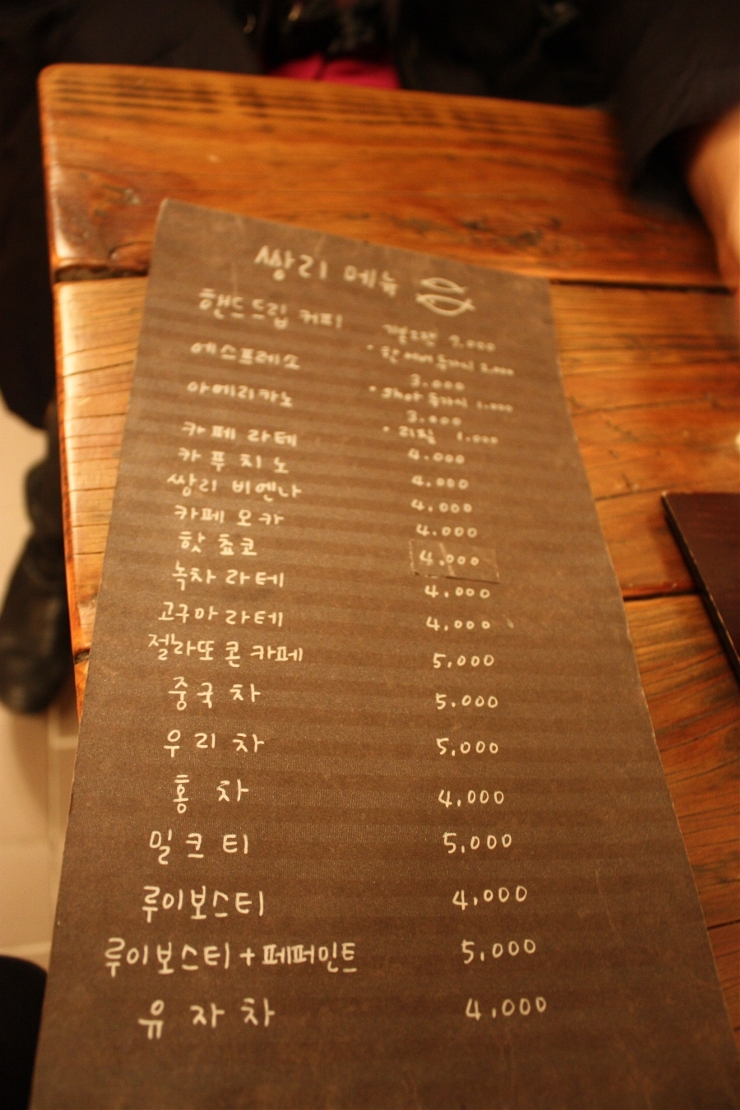 쌍리 메뉴
핸드드립 커피
에스프레소 3.000
• shot 추가시 1.000
아메리카노 3.000
• 리필 1.000
카페 라떼 4.000
카 푸 치 노 4.000
쌍리 비엔나 4.000
카페 모카 4.000
핫 쵸코 4.000
녹차 라떼 4.000
고구마 라떼 4.000
젤라또 콘 카페 5.000
중 국 차 5.000
우 리 차 5.000
홍 차 4.000
밀 크 티 5.000
루이보스티 4.000
루이보스티 + 페퍼민트 5.000
유 자 차 4.000